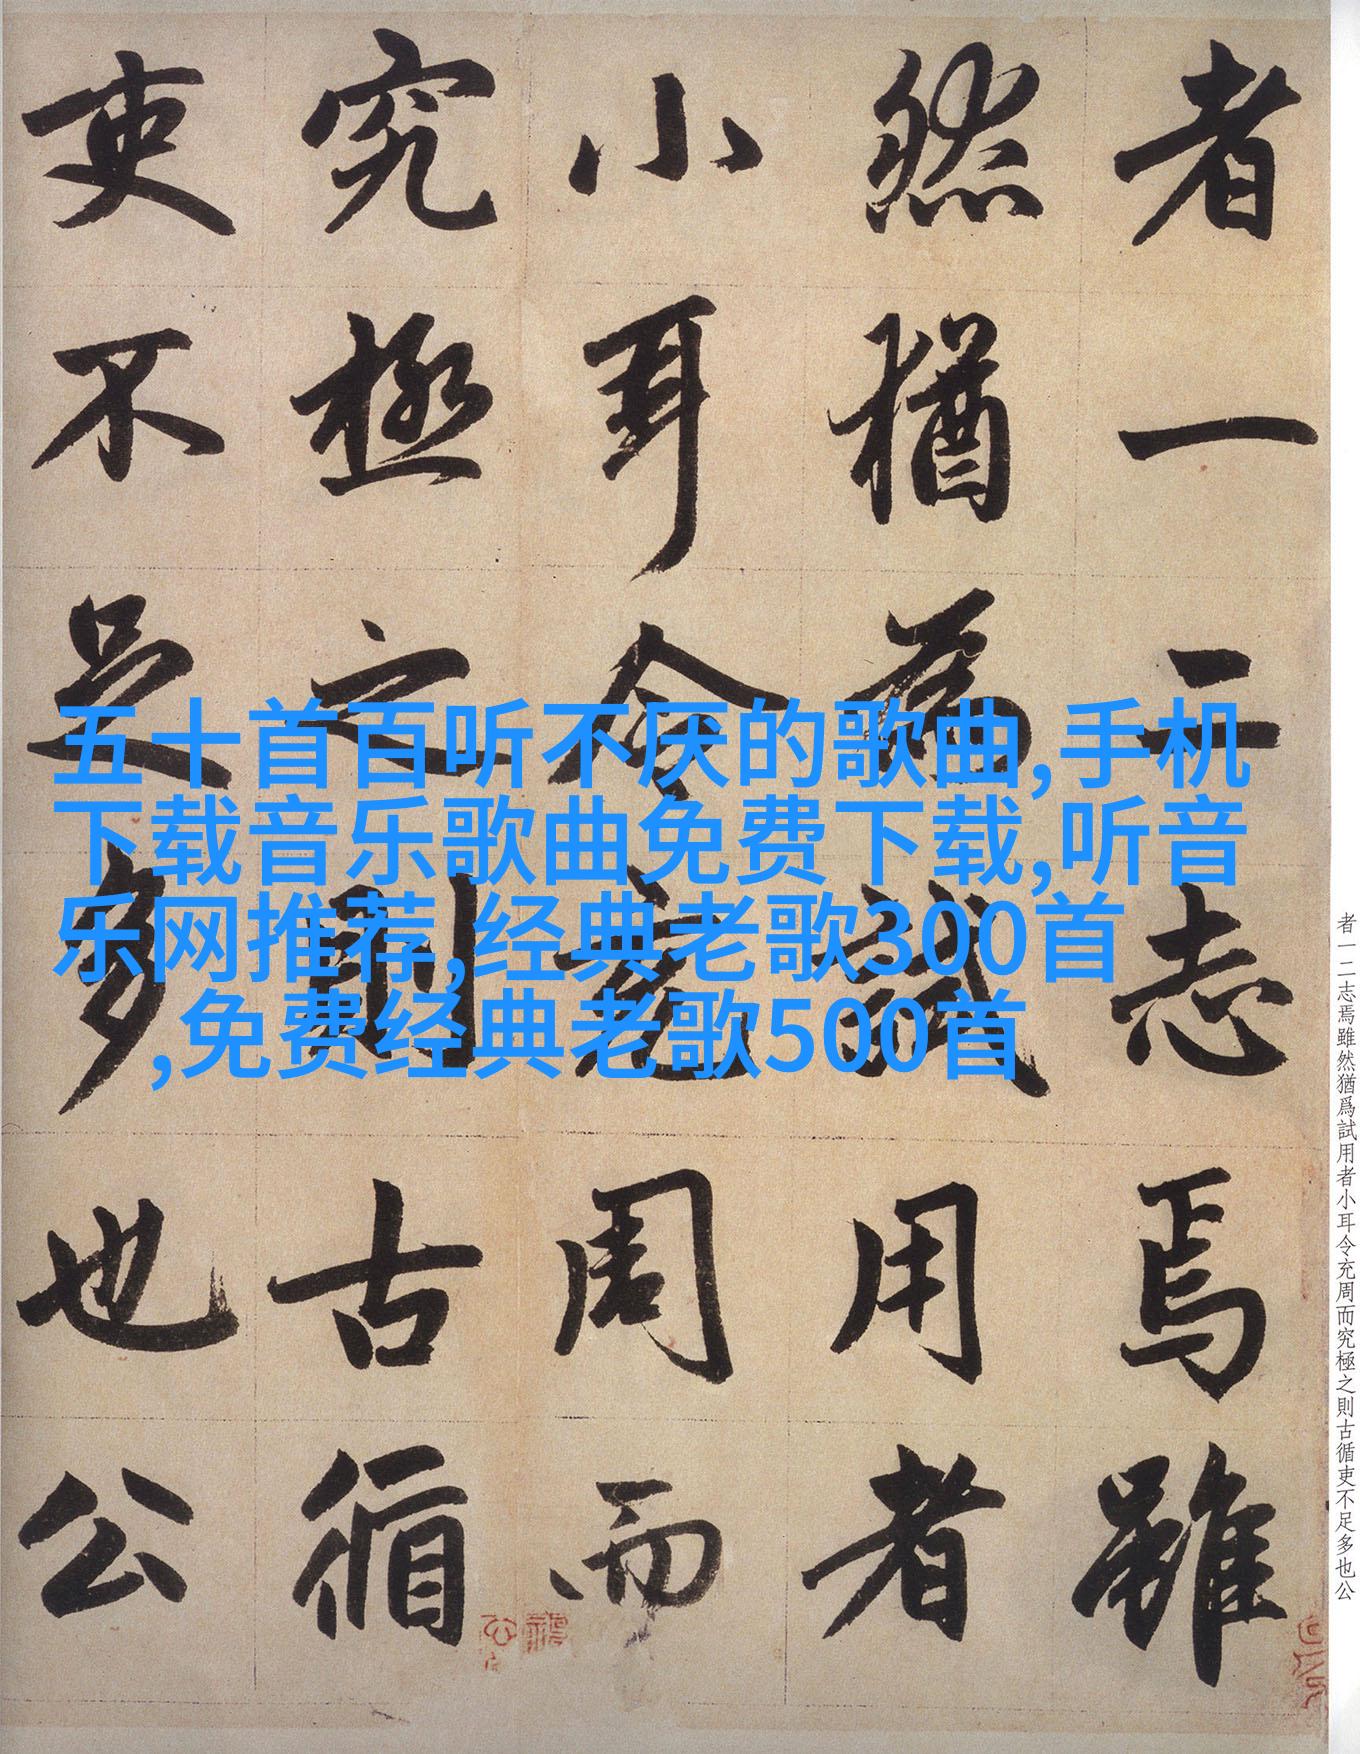 者一二志焉雖
然猶為試用者
小耳令充周而
究極之則古循
吏不足多也公
五十首百听不厌的歌曲,手机
下载音乐歌曲免费下载,听音
乐网推荐,经典老歌300首
,免费经典老歌500首
者一二志焉雖然猶爲試用者小耳令充周而究極之則古循吏不足多也公